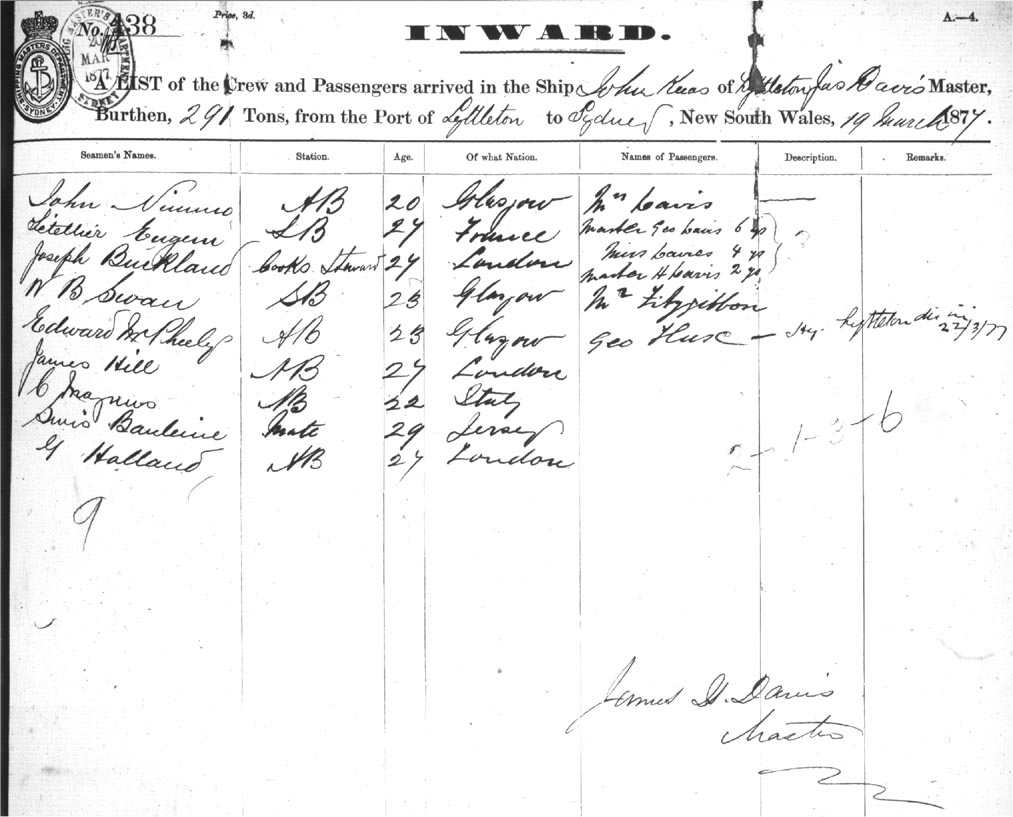 Price, 3d.
A.—4.
No. 438
INWARD.
SHIPPING MASTER'S DEPARTMENT
20 MAR 1877
SYDNEY
A LIST of the Crew and Passengers arrived in the Ship John of Lyttleton Jas Davis Master,
Burthen, 291 Tons, from the Port of Lyttleton to Sydney, New South Wales, 19 March 1877.
Seamen's Names. Station. Age. Of what Nation. Names of Passengers. Description. Remarks.
John Nimmo AB 20 Glasgow Mrs Davis —
Letellier Eugene SB 27 France Master Geo Davis 6 ys
Joseph Buckland Cook & Steward 27 London Miss Davies 4 ys
Master H Davis 2 ys
W B Swan SB 23 Glasgow Mr Fitzgibbon
Edward McPheely AB 23 Glasgow Geo — Lyttleton 22/3/77
James Hill AB 27 London
C Magnus AB 22 Italy
Mate 29 Jersey
G Holland AB 27 London
2 - 1 - 3 - 6
9
James H. Davis
Master